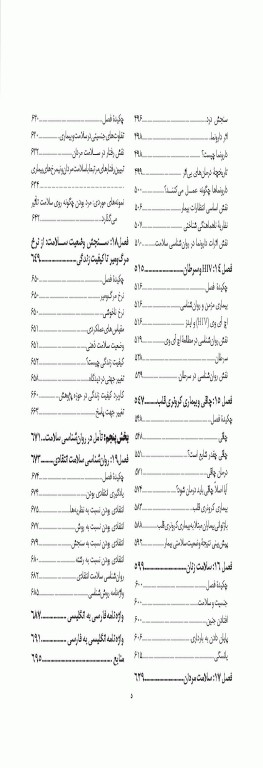 سنجش درد ۴۹۶
اثر دارونما ۴۹۸
دارونما چیست؟ ۴۹۸
تاریخچهٔ درمان‌های بی‌اثر ۴۹۹
دارونماها چگونه عمل می‌کنند؟ ۵۰۰
نقش اساسی انتظارات بیمار ۵۰۶
نظریهٔ ناهماهنگی شناختی ۵۰۷
نقش اثرات دارونما در روان‌شناسی سلامت ۵۱۰
فصل ۱۴: HIV و سرطان ۵۱۵
چکیدهٔ فصل ۵۱۶
بیماری مزمن و روان‌شناسی ۵۱۶
اچ آی وی (HIV) و ایدز ۵۱۶
نقش روان‌شناسی در مطالعهٔ اچ آی وی ۵۱۹
سرطان ۵۲۸
نقش روان‌شناسی در سرطان ۵۲۹
فصل ۱۵: چاقی و بیماری کرونری قلب ۵۴۷
چکیدهٔ فصل ۵۴۸
چاقی ۵۴۸
چاقی چقدر شایع است؟ ۵۵۱
درمان چاقی ۵۷۱
آیا اصلاً چاقی باید درمان شود؟ ۵۷۴
بیماری کرونری قلب ۵۸۲
بازتوانی بیماران مبتلا به بیماری کرونری قلب ۵۸۸
پیش‌بینی نتیجهٔ وضعیت سلامتی بیمار ۵۹۲
فصل ۱۶: سلامت زنان ۵۹۹
چکیدهٔ فصل ۶۰۰
جنسیت و سلامت ۶۰۰
افتادن جنین ۶۰۰
پایان دادن به بارداری ۶۰۶
یائسگی ۶۱۵
فصل ۱۷: سلامت مردان ۶۲۹
چکیدهٔ فصل ۶۳۰
تفاوت‌های جنسیتی در سلامت و بیماری ۶۳۰
نقش رفتار در سلامت مردان ۶۳۲
تبیین رفتارهای مرتبط با سلامت مردان و نیمرخ‌های بیماری
۶۳۴
نمونه‌های موردی: مرد بودن چگونه روی سلامت تأثیر
می‌گذارد ۶۴۲
فصل ۱۸: سنجش وضعیت سلامت: از نرخ
مرگ‌ومیر تا کیفیت زندگی ۶۴۹
چکیدهٔ فصل ۶۵۰
نرخ مرگ‌ومیر ۶۵۰
نرخ ناخوشی ۶۵۰
مقیاس‌های عملکردی ۶۵۱
وضعیت سلامت ذهنی ۶۵۱
کیفیت زندگی چیست؟ ۶۵۲
تغییر جهتی در دیدگاه ۶۵۸
کاربرد کیفیت زندگی در حوزه پژوهش ۶۶۰
تغییر جهت پاسخ ۶۶۳
بخش پنجم: تأمل در روان‌شناسی سلامت ۶۷۱
فصل ۱۹: روان‌شناسی سلامت انتقادی ۶۷۳
چکیدهٔ فصل ۶۷۴
یادگیری انتقادی بودن ۶۷۴
انتقادی بودن نسبت به نظریه‌ها ۶۷۵
انتقادی بودن نسبت به روش ۶۷۷
انتقادی بودن نسبت به سنجش ۶۷۹
انتقادی بودن نسبت به رشته ۶۸۰
روان‌شناسی سلامت انتقادی ۶۸۲
واژه‌نامه روش‌شناسی ۶۸۵
واژه‌نامه فارسی به انگلیسی ۶۸۷
واژه‌نامه انگلیسی به فارسی ۶۹۱
منابع ۶۹۵